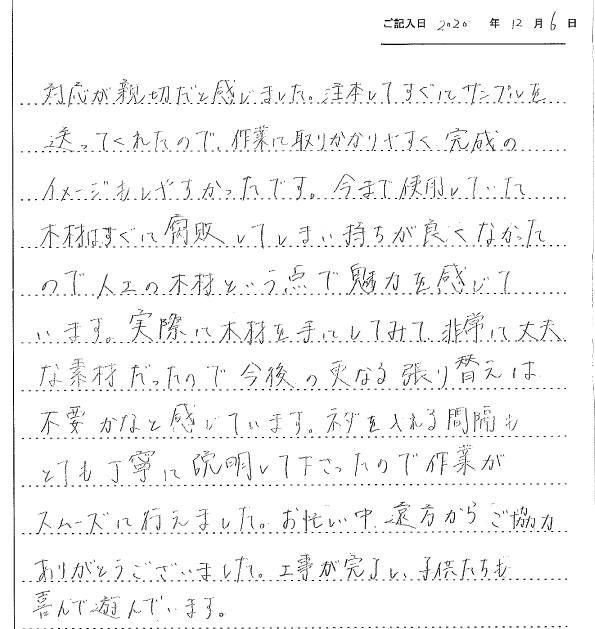 ご記入日 2020 年 12 月 6 日
対応が親切だと感じました。注本してすぐにサンプルを
送ってくれたので、作業に取りかかりやすく完成の
イメージもしやすかったです。今まで使用していた
木材はすぐに腐敗してしまい持ちが良くなかた
ので人工の木材という点で魅力を感じて
います。実際に木材を手にしてみて、非常に丈夫
な素材だったので今後の更なる張り替えは
不要かなと感じています。ネダを入れる間隔も
とても丁寧に説明して下さったので作業が
スムーズに行えました。お忙しい中、遠方からご協力
ありがとうございました。工事が完了し、子供たちも
喜んで遊んでいます。